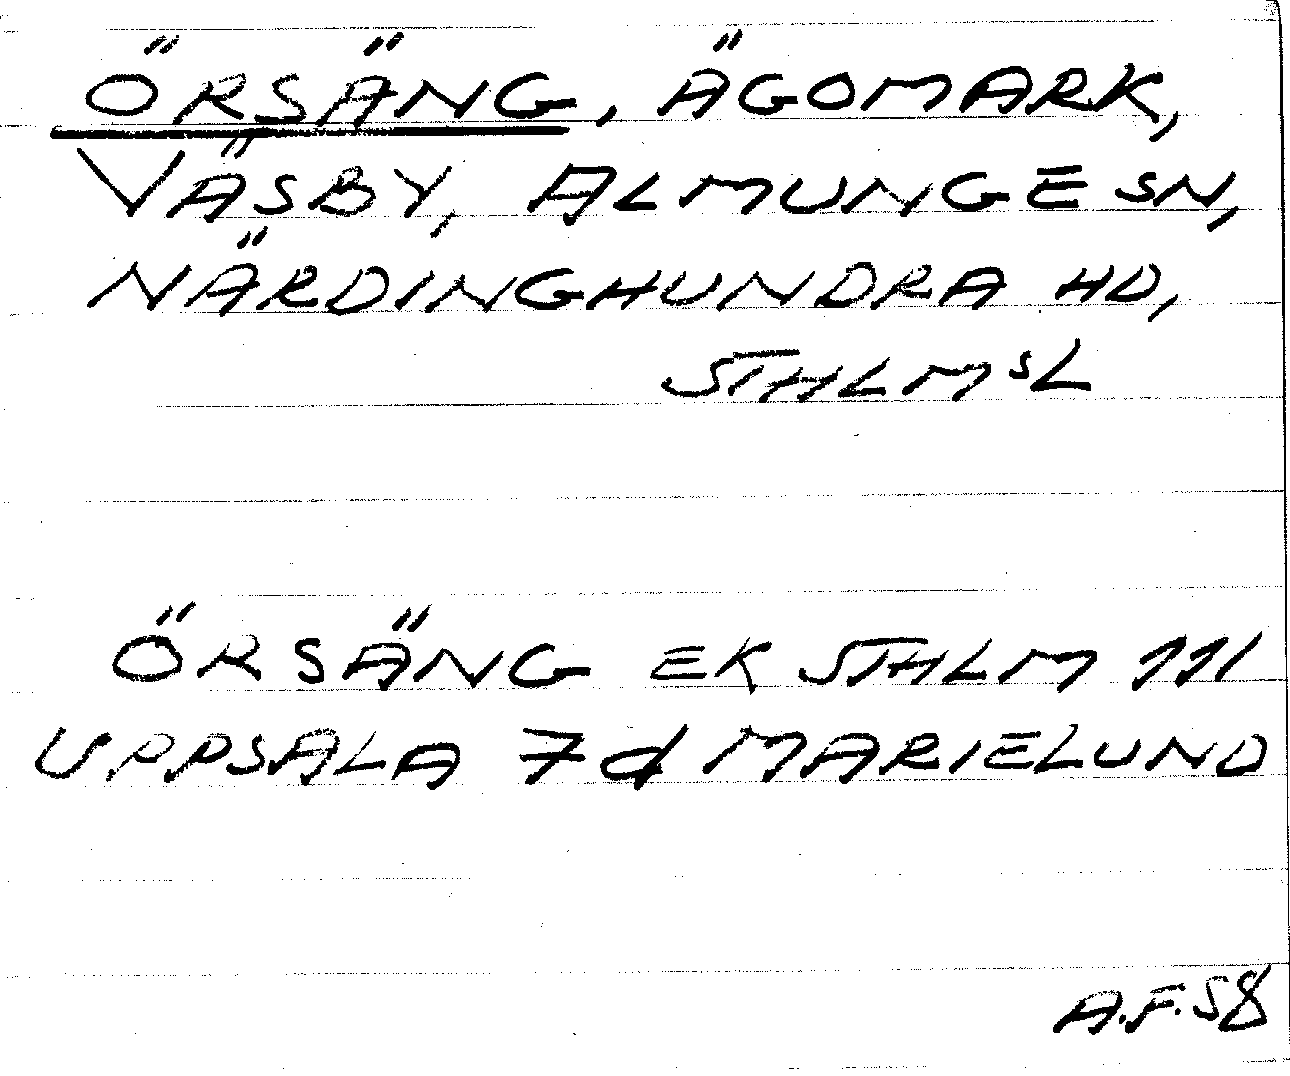 ÖRSÄNG, ÄGOMARK,
VÄSBY, ALMUNGE SN,
NÄRDINGHUNDRA HD,
STHLMSL
ÖRSÄNG EK STHLM 111
UPPSALA 7d MARIELUND
A.F. 58